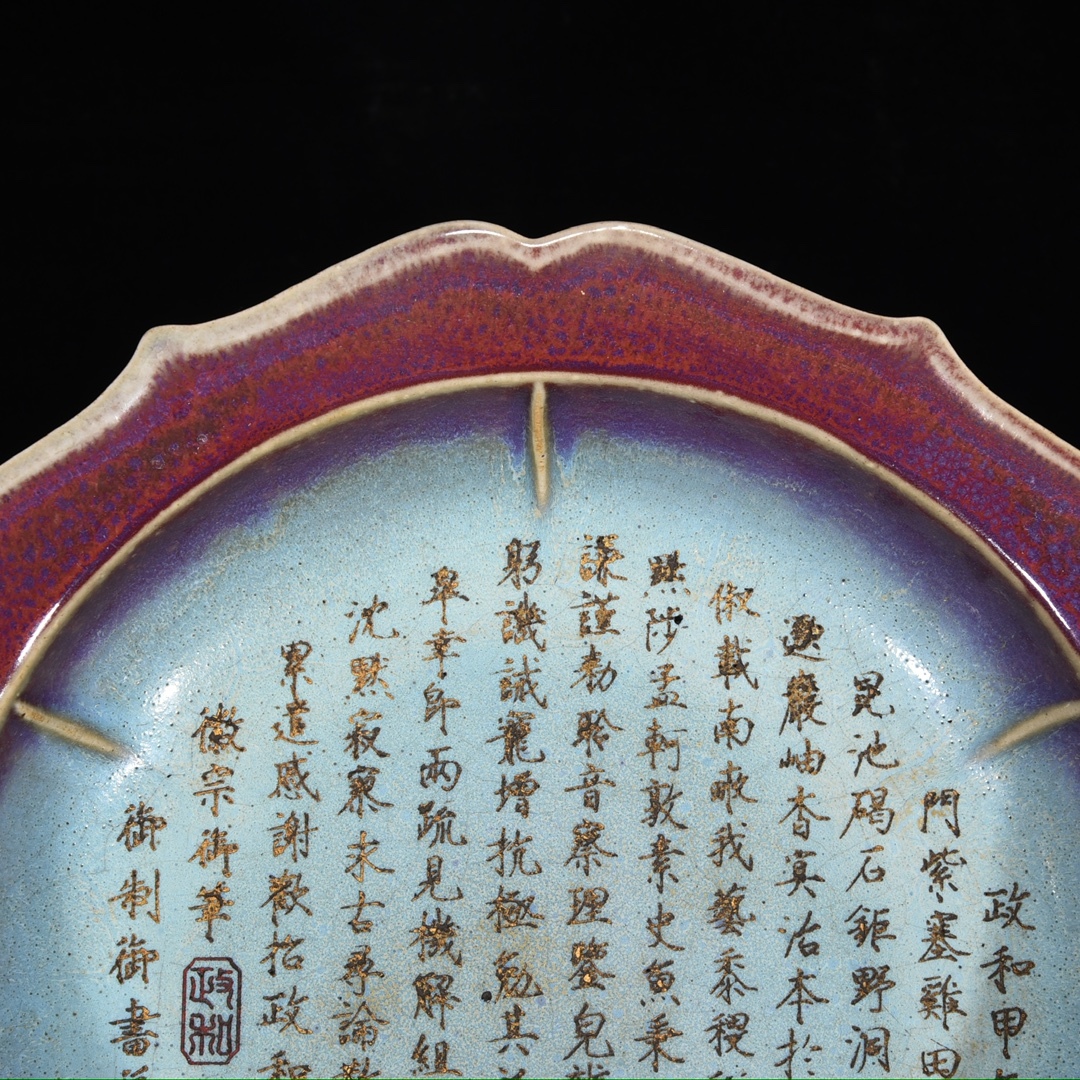 政和甲
門紫塞雞田
昆池碣石鉅野洞
邈巖岫杳冥治本於
俶載南畝我藝黍稷
黜陟孟軻敦素史魚秉
謙謹勅聆音察理鑒皃
躬譏誡寵增抗極勉其
皋幸即兩疏見機解組
沈默寂寥求古尋論散
累遣感謝歡招政和
徽宗御筆
政和
御制御書